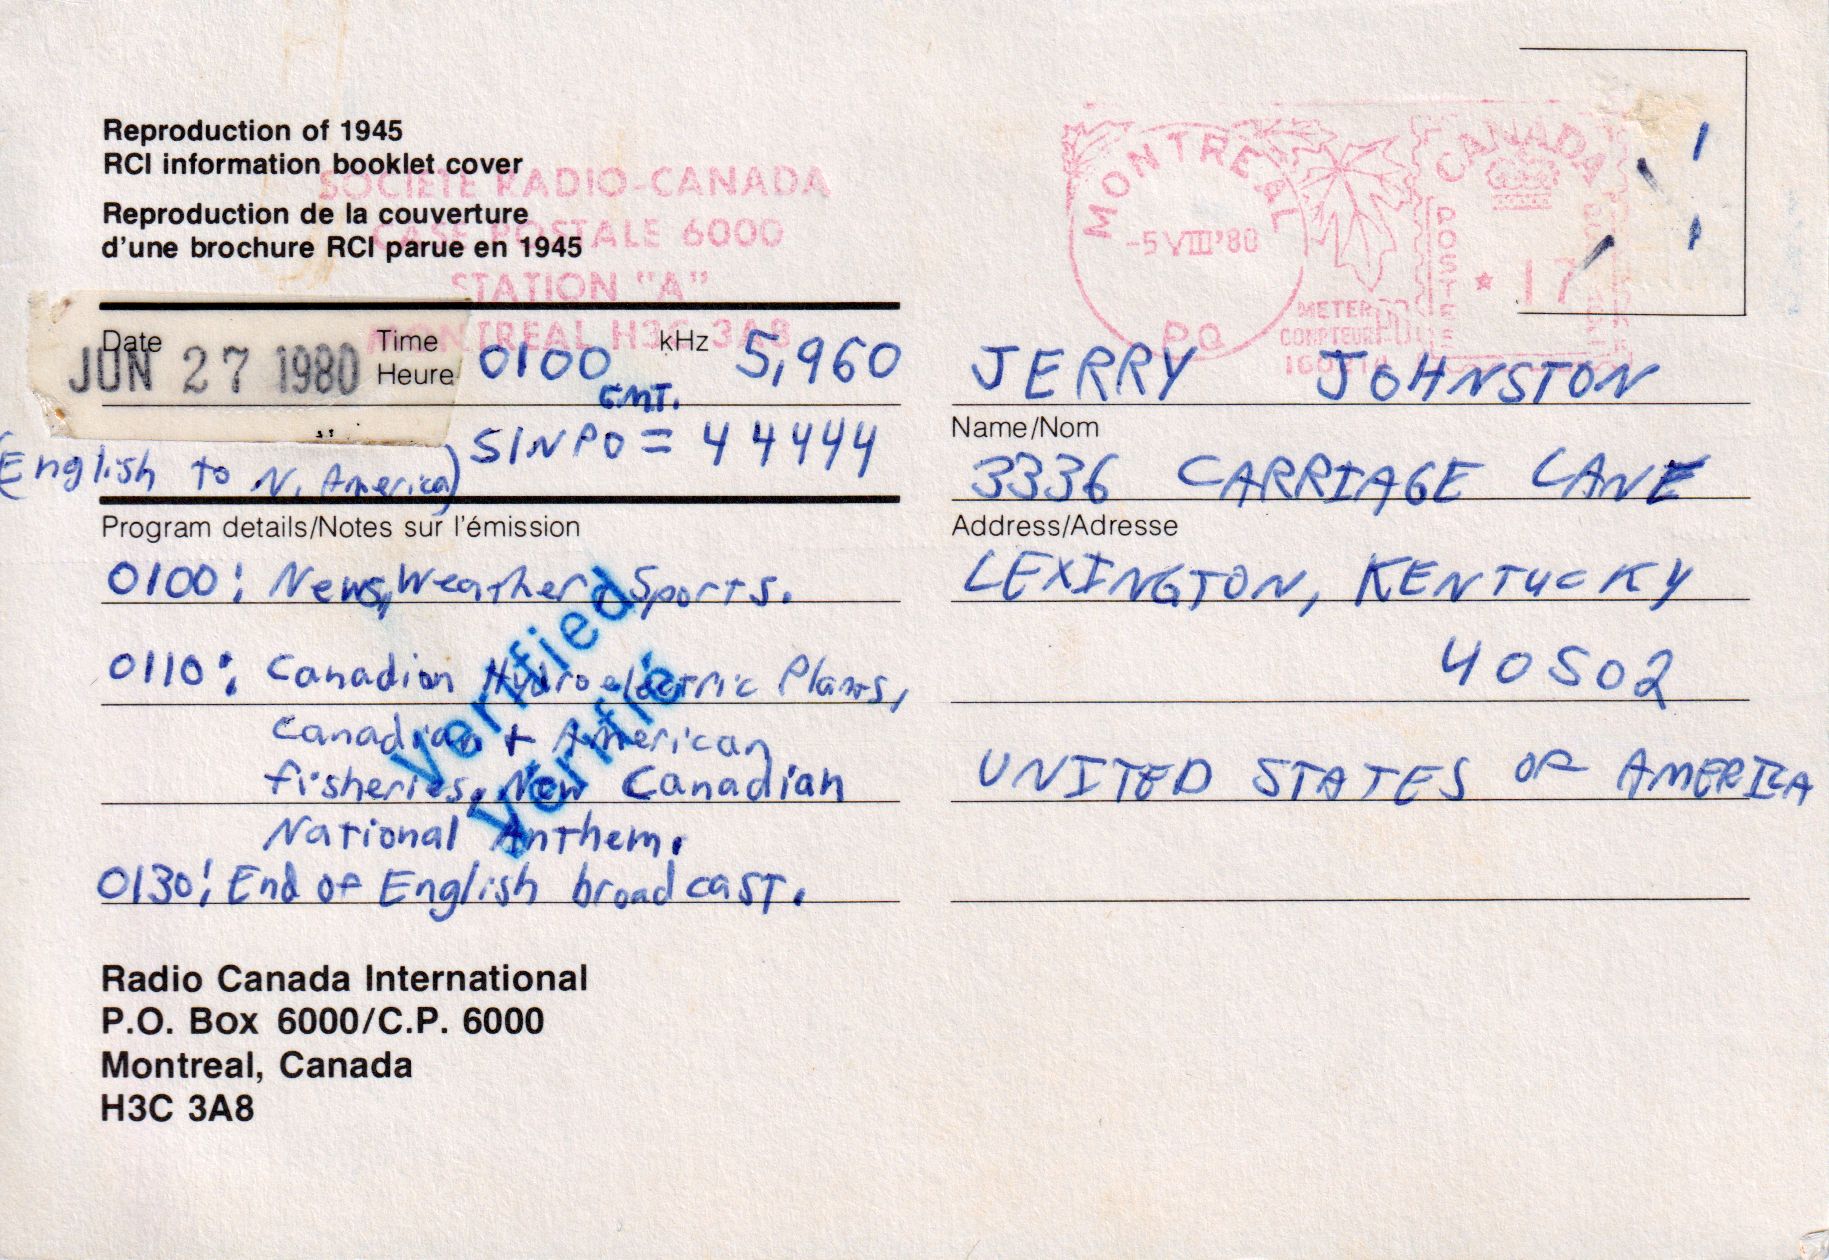 Reproduction of 1945
RCI information booklet cover
Reproduction de la couverture
d'une brochure RCI parue en 1945
SOCIETE RADIO-CANADA
CASE POSTALE 6000
STATION "A"
MONTREAL H3C 3A8
MONTREAL
-5 VIII '80
P.Q.
CANADA
POSTE
17
METER
COMPTEUR
Date
JUN 27 1980
Time
Heure
0100
GMT.
kHz
5,960
(English to N. America)
SINPO = 44444
Program details/Notes sur l'émission
0100: News, Weather, Sports.
0110: Canadian Hydroelectric Plants,
Canadian + American
fisheries, New Canadian
National Anthem.
0130: End of English broadcast.
Verified
Vérifié
JERRY JOHNSTON
Name/Nom
3336 CARRIAGE LANE
Address/Adresse
LEXINGTON, KENTUCKY
40502
UNITED STATES OF AMERICA
Radio Canada International
P.O. Box 6000/C.P. 6000
Montreal, Canada
H3C 3A8